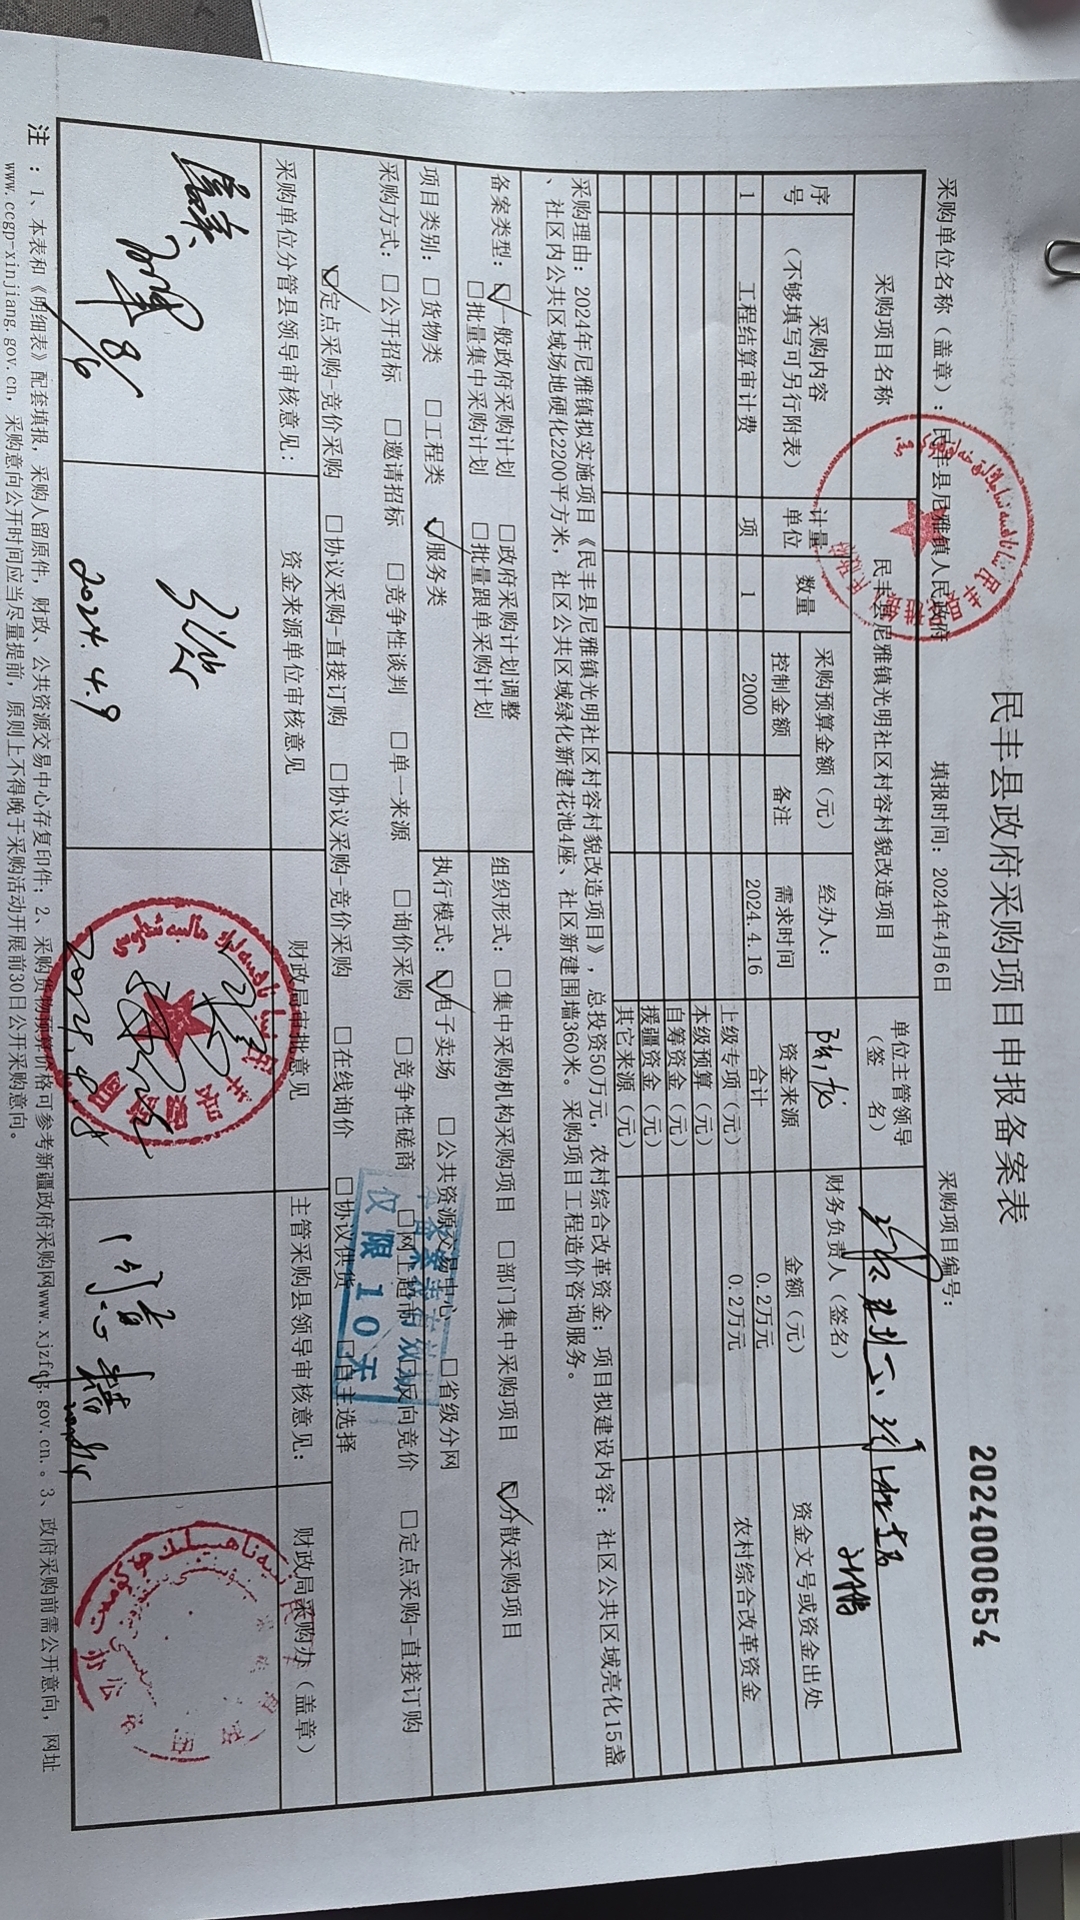 民丰县政府采购项目申报备案表
2024000654
采购单位名称（盖章）：民丰县尼雅镇人民政府 填报时间：2024年4月6日 采购项目编号：
采购项目名称 民丰县尼雅镇光明社区村容村貌改造项目 单位主管领导（签 名）
经办人： 财务负责人（签名）
序号 采购内容（不够填写可另行附表） 计量单位 数量 采购预算金额（元） 需求时间 资金来源 金额（元） 资金文号或资金出处
控制金额 备注
1 工程结算审计费 项 1 2000 2024.4.16 合计 0.2万元
上级专项（元） 0.2万元 农村综合改革资金
本级预算（元）
自筹资金（元）
援疆资金（元）
其它来源（元）
采购理由：2024年尼雅镇拟实施项目《民丰县尼雅镇光明社区村容村貌改造项目》，总投资50万元，农村综合改革资金；项目拟建设内容：社区公共区域亮化15盏
、社区内公共区域场地硬化2200平方米，社区公共区域绿化新建花池4座、社区新建围墙360米。采购项目工程造价咨询服务。
备案类型：☑一般政府采购计划 □政府采购计划调整 组织形式：□集中采购机构采购项目 □部门集中采购项目 ☑分散采购项目
□批量集中采购计划 □批量跟单采购计划
项目类别：□货物类 □工程类 ☑服务类 执行模式：☑电子卖场 □公共资源交易中心 □省级分网
采购方式：□公开招标 □邀请招标 □竞争性谈判 □单一来源 □询价采购 □竞争性磋商 □网上超市 □反向竞价 □定点采购-直接订购
☑定点采购-竞价采购 □协议采购-直接订购 □协议采购-竞价采购 □在线询价 □协议供货 □自主选择
仅限10天
采购单位分管县领导审核意见： 资金来源单位审核意见 财政局审批意见 主管采购县领导审核意见： 财政局采购办（盖章）
2024.4.9
注：1、本表和《明细表》配套填报，采购人留原件，财政、公共资源交易中心存复印件；2、采购货物预算价格可参考新疆政府采购网www.xjzfcg.gov.cn.。3、政府采购前需公开意向，网址
www.ccgp-xinjiang.gov.cn，采购意向公开时间应当尽量提前，原则上不得晚于采购活动开展前30日公开采购意向。